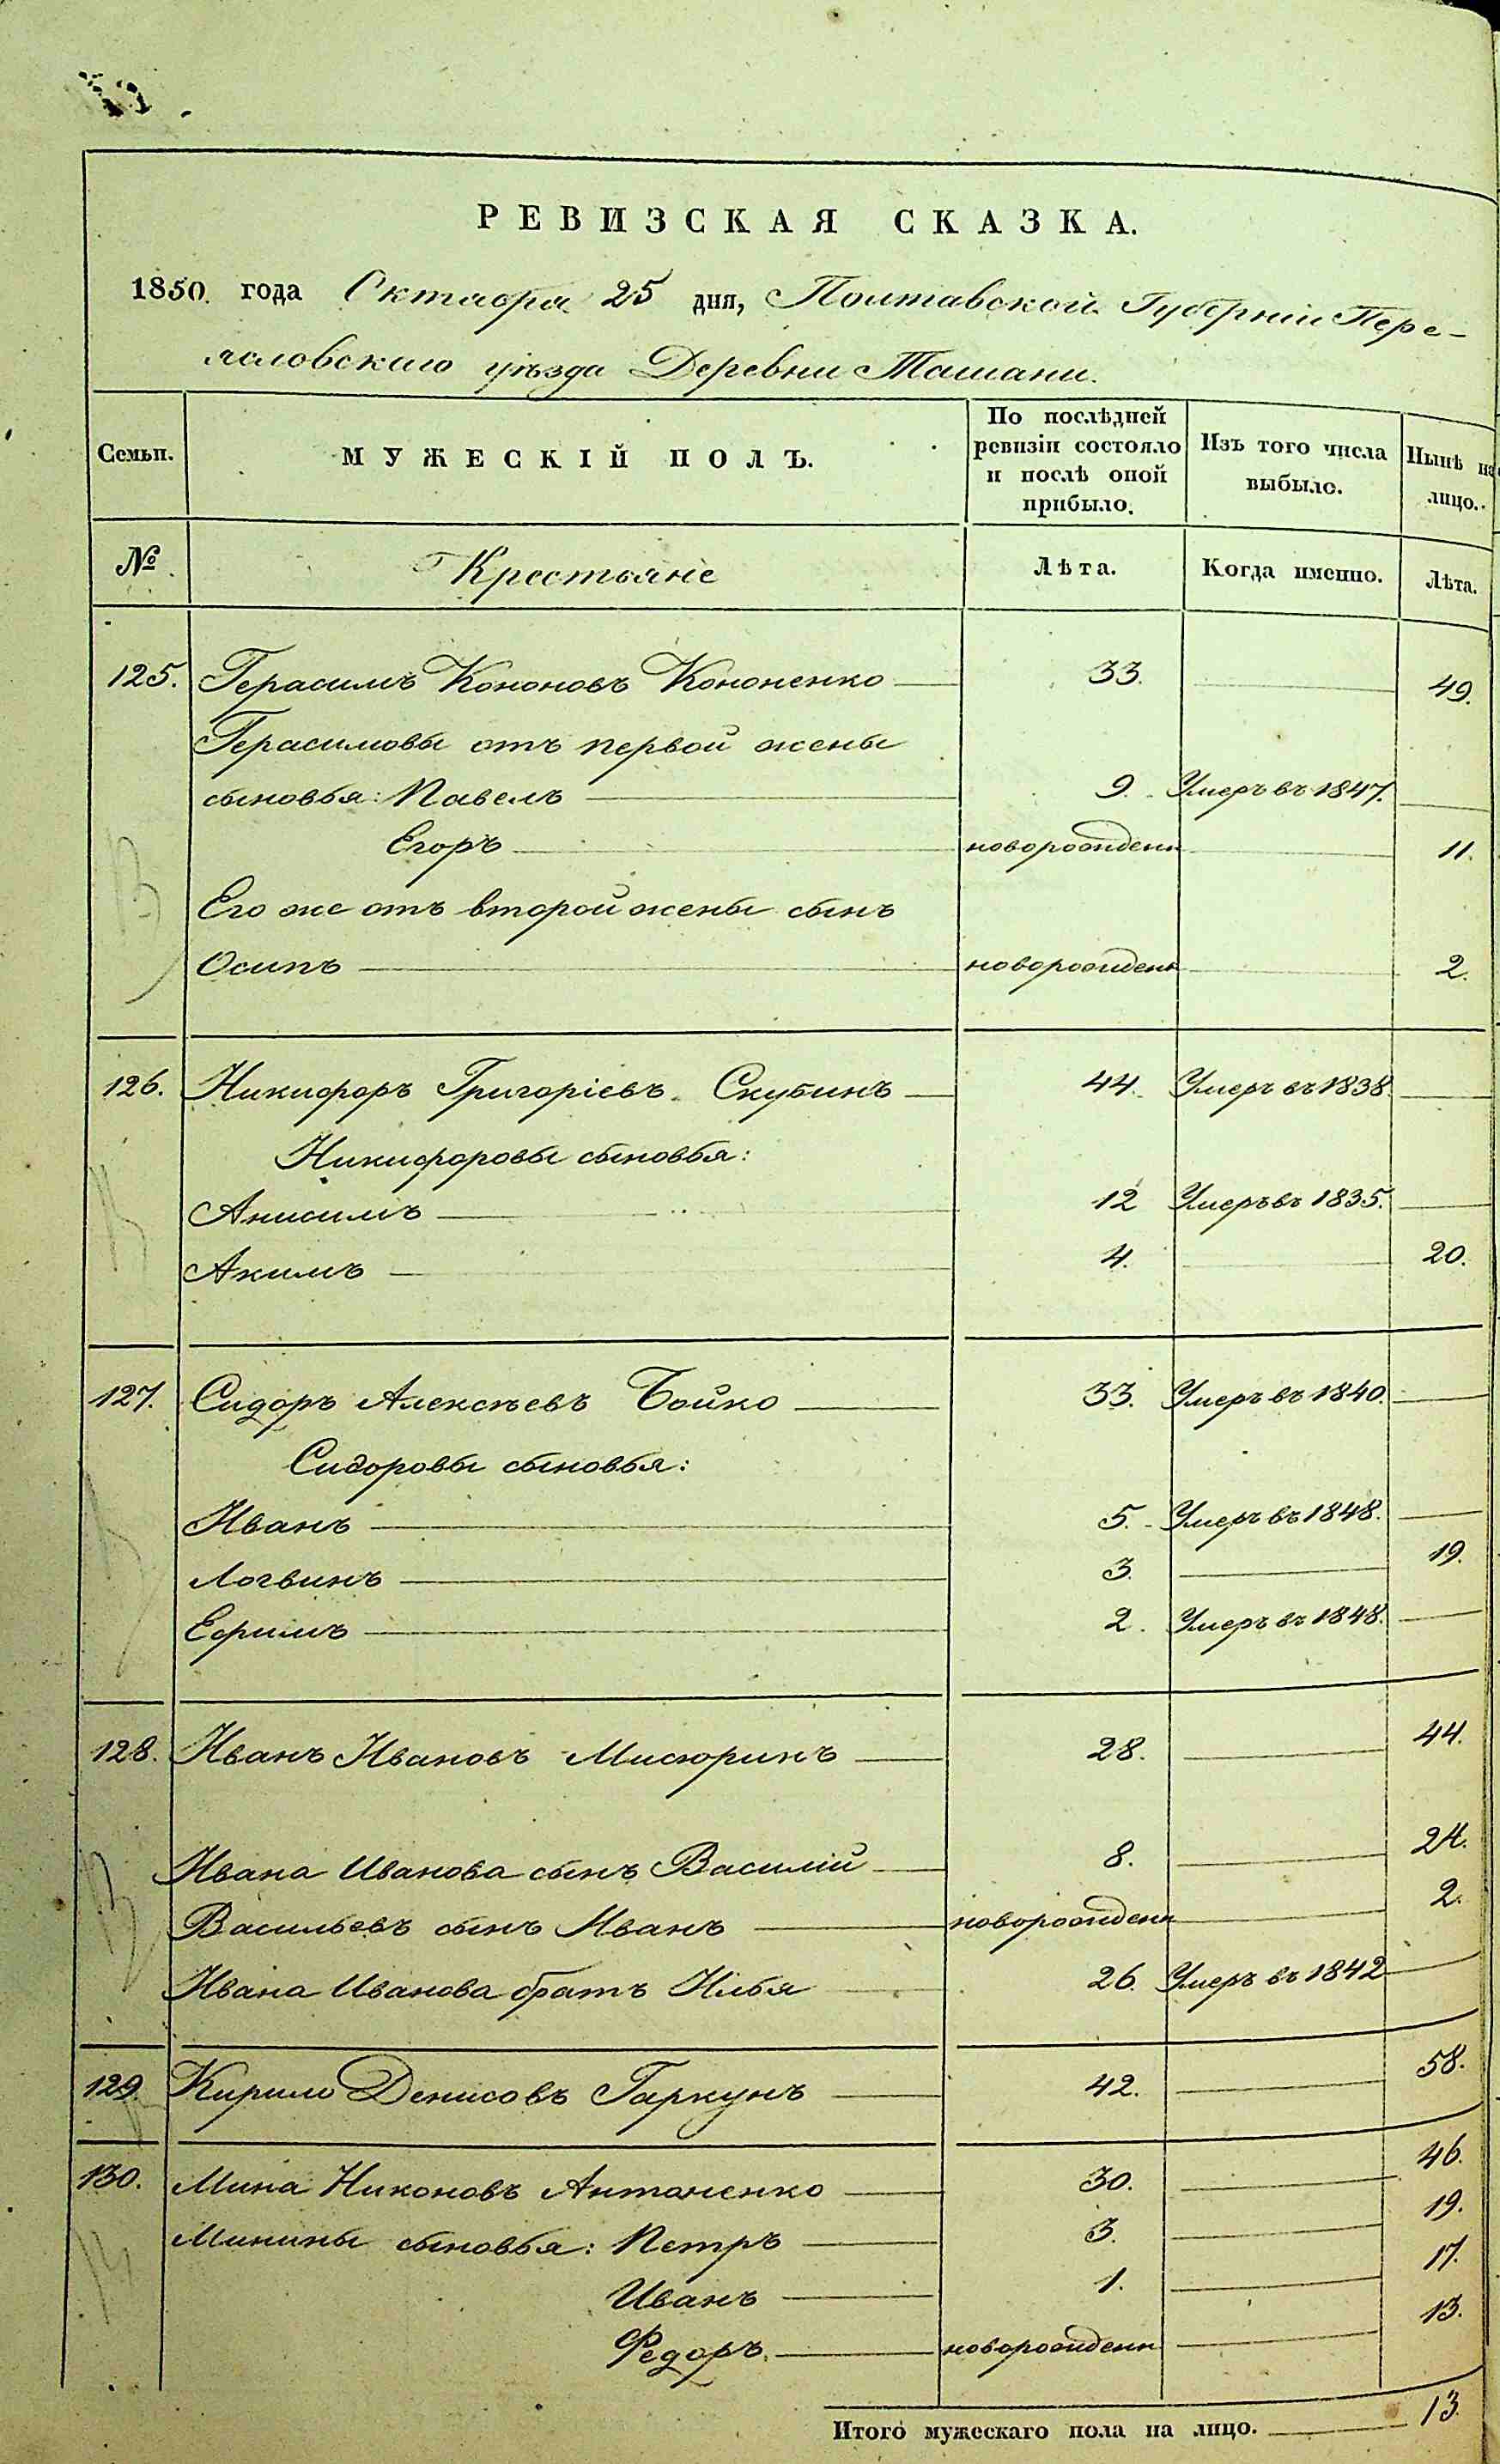 РЕВИЗСКАЯ СКАЗКА.
1850. года Октября 25 дня, Полтавской Губерніи Пере-
яславскаго уѣзда Деревни Ташани.
Семьи.
МУЖЕСКІЙ ПОЛЪ.
По послѣдней ревизіи состояло и послѣ оной прибыло.
Изъ того числа выбыло.
Нынѣ на лицо.
№ Крестьяне Лѣта. Когда именно. Лѣта.
125. Герасимъ Кононовъ Кононенко 33. 49.
Герасимовы отъ первой жены
сыновья: Павелъ 9. Умеръ въ 1847.
Егоръ новорожден 11.
Его же отъ второй жены сынъ
Осипъ новорожден 2.
126. Никифоръ Григоріевъ Скубинъ 44. Умеръ въ 1838.
Никифоровы сыновья:
Анисимъ 12 Умеръ въ 1835.
Акимъ 4. 20.
127. Сидоръ Алексѣевъ Бойко 33. Умеръ въ 1840.
Сидоровы сыновья:
Иванъ 5. Умеръ въ 1848.
Логвинъ 3. 19.
Ефимъ 2. Умеръ въ 1848.
128. Иванъ Ивановъ Мисюринъ 28. 44.
Ивана Иванова сынъ Василій 8. 24.
Васильевъ сынъ Иванъ новорожден 2.
Ивана Иванова братъ Илья 26. Умеръ въ 1842
129. Кирило Денисовъ Гаркунъ 42. 58.
130. Мина Никоновъ Антоненко 30. 46.
Минины сыновья: Петръ 3. 19.
Иванъ 1. 17.
Федоръ новорожден 13.
Итого мужескаго пола на лицо. 13